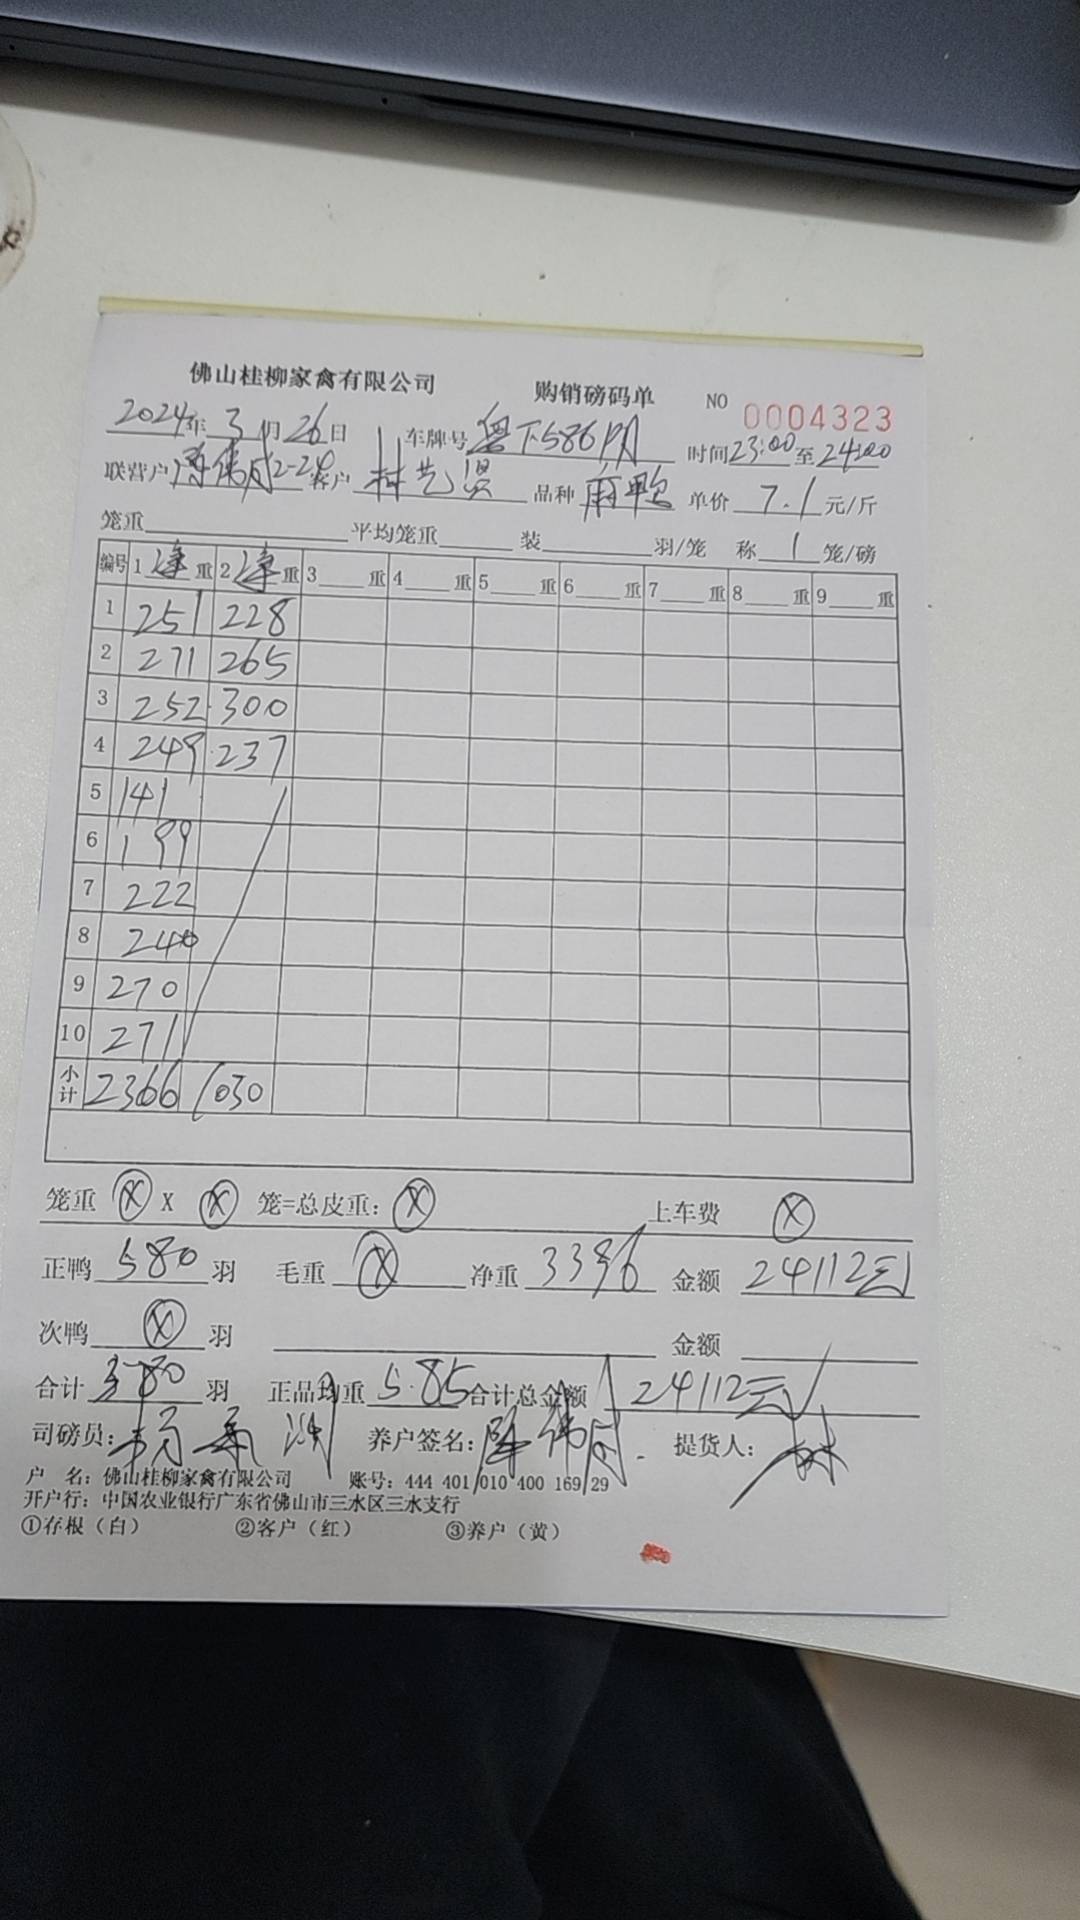 佛山桂柳家禽有限公司 购销磅码单 NO 0004323
2024年3月26日 车牌号 粤 时间23:00至24:00
联营户 2-24 客户 林艺贤 品种 麻鸭 单价 7.1 元/斤
笼重 平均笼重 装 羽/笼 称 1 笼/磅
编号 1 净 重 2 净 重 3 重 4 重 5 重 6 重 7 重 8 重 9 重
1 251 228
2 271 265
3 252 300
4 249 237
5 141
6 199
7 222
8 240
9 270
10 271
小计 2366 1030
笼重 ⓧ X ⓧ 笼=总皮重: ⓧ 上车费 ⓧ
正鸭 580 羽 毛重 ⓧ 净重 3396 金额 24112元
次鸭 ⓧ 羽 金额
合计 580 羽 正品均重 5.85 合计总金额 24112元
司磅员: 养户签名: 提货人: 林
户 名: 佛山桂柳家禽有限公司 账号: 444 401 010 400 169 29
开户行: 中国农业银行广东省佛山市三水区三水支行
①存根（白） ②客户（红） ③养户（黄）